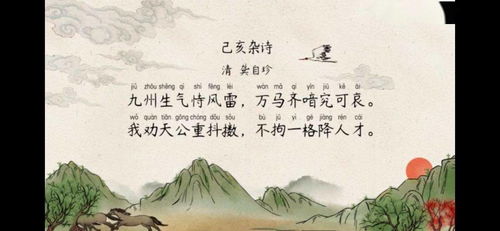 己亥杂诗
清 龚自珍
jiǔ zhōu shēng qì shì fēng léi wàn mǎ qí yīn jiū kě āi
九州生气恃风雷，万马齐喑究可哀。
wǒ quàn tiān gōng chóng dǒu sǒu bù jū yì gé jiàng rén cái
我劝天公重抖擞，不拘一格降人才。